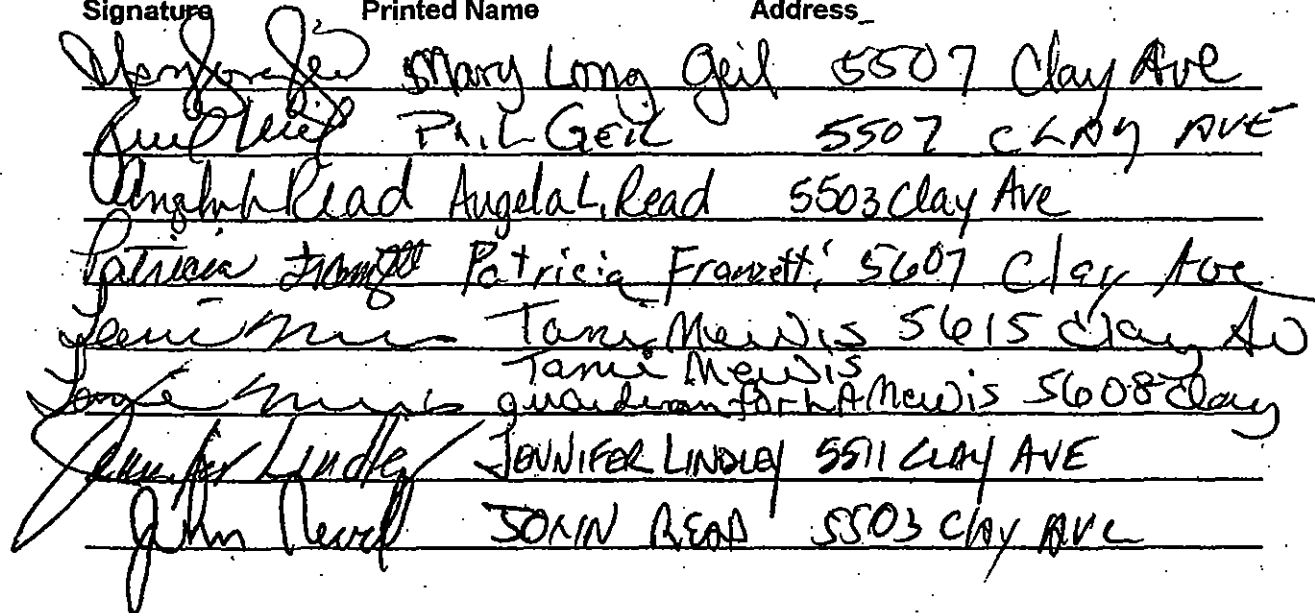 Signature Printed Name Address
Mary Long Geil 5507 Clay Ave
Phil Geil 5507 CLAY AVE
Angela L Read Angela L. Read 5503 Clay Ave
Patricia Franzetti Patricia Franzetti 5607 Clay Ave
Tami Mewis 5615 Clay Av
Tami Mewis
guardian for LA Mewis 5608 Clay
Jennifer Lindley JENNIFER LINDLEY 5511 CLAY AVE
John Read JOHN READ 5503 Clay AVE